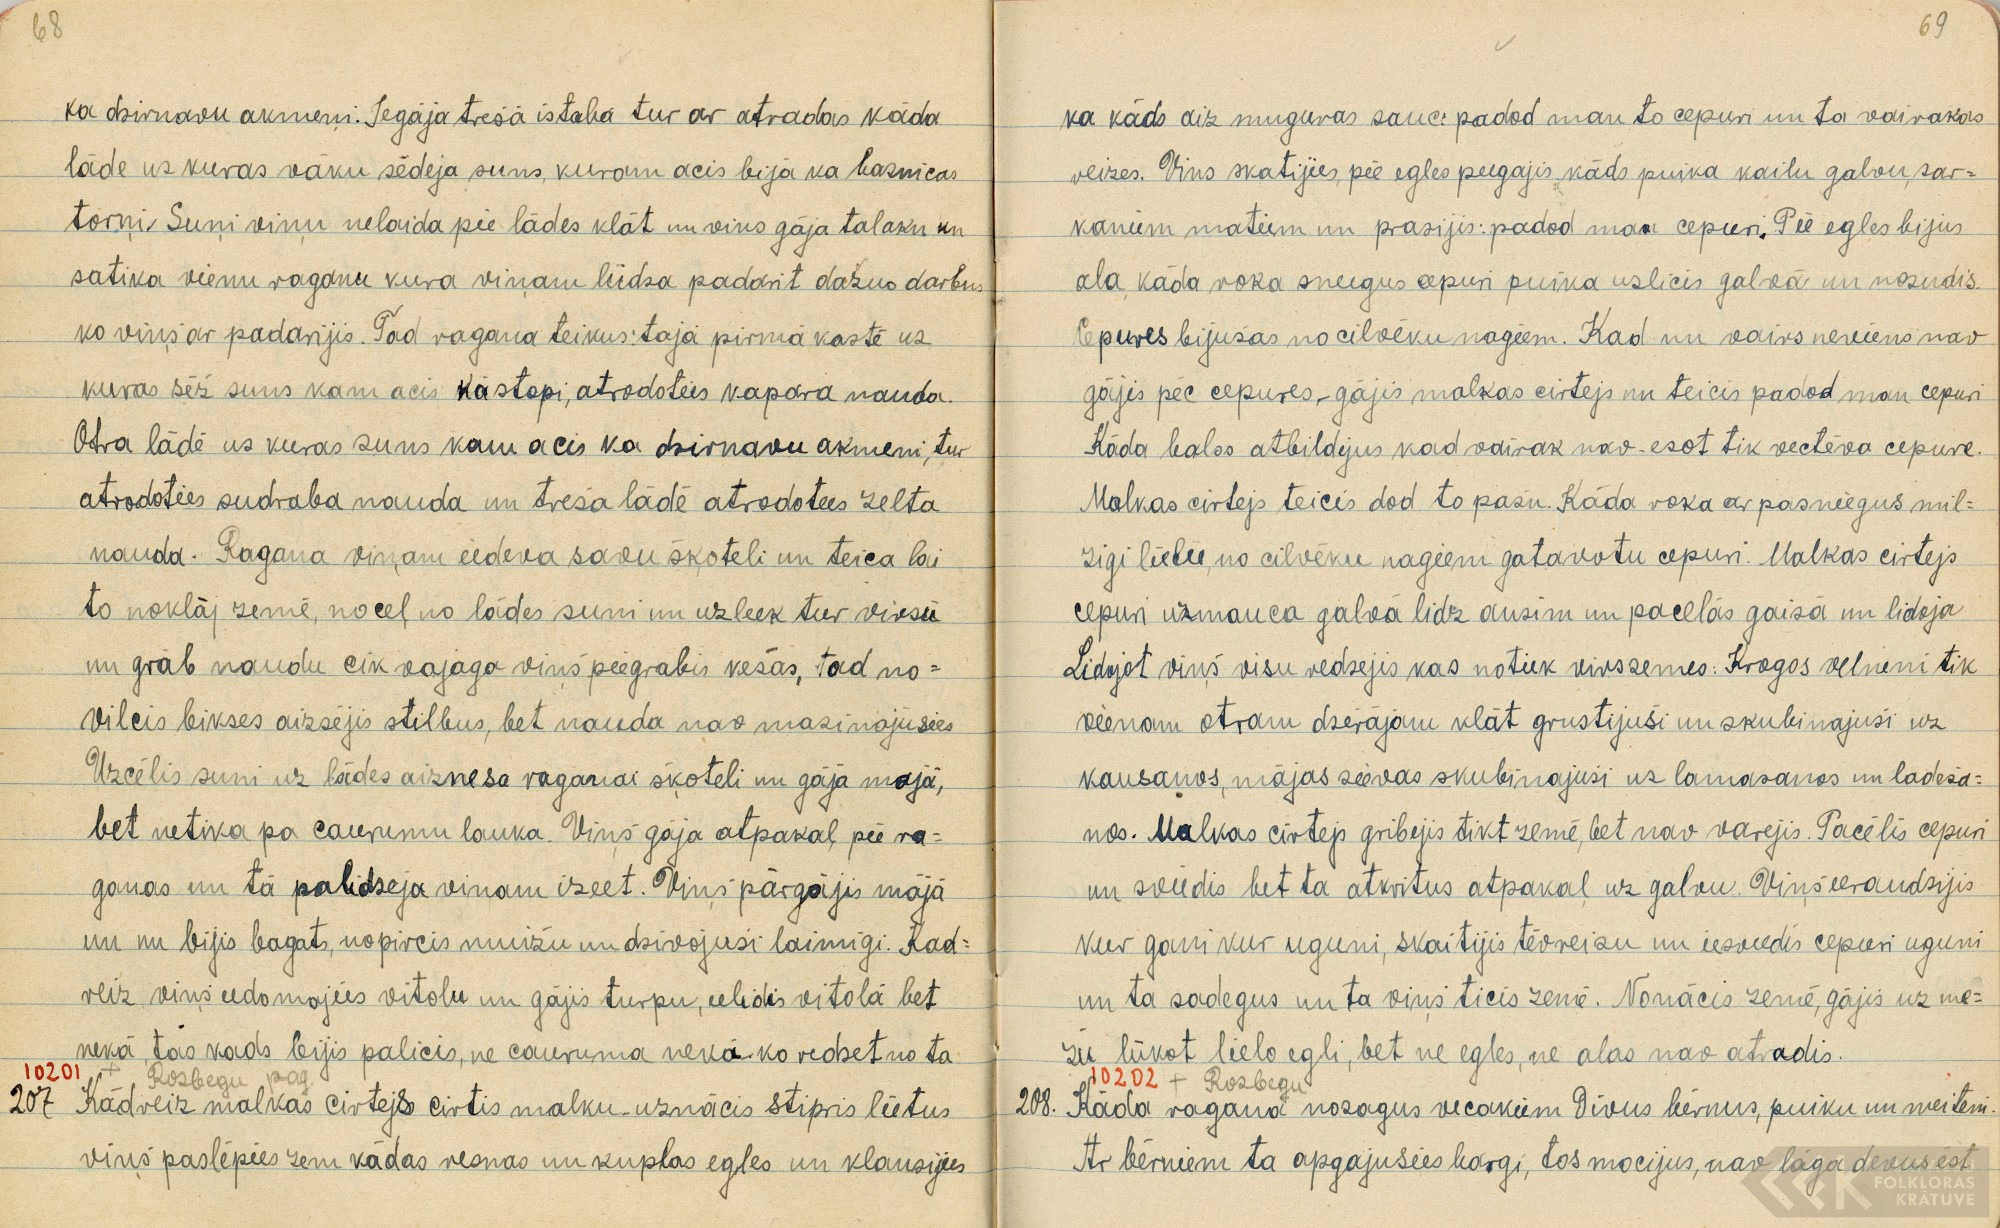 68
ka dzirnavu akmeņi. Iegāja trešā istabā tur ar atradas kāda
lāde uz kuras vāku sēdēja suns, kuram acis bijā ka basnicas
torņi. Suņi viņu nelaida pie lādes klāt un viņs gāja talaku un
satika vienu raganu kura viņam lūdza padarit dažus darbus
ko viņš ar padarijis. Tad ragana teikus: tajā pirmā kastē uz
kuras sēž suns kam acis kā stopi, atrodoties kapara nauda.
Otra lādē uz kuras suns kam acis ka dzirnavu akmeni, tur
atrodoties sudraba nauda un treša lādē atrodoties zelta
nauda. Ragana viņam iedeva savu šķoteli un teica lai
to noklāj zemē, noceļ no lādes suni un uzleek tur virsū
un grāb naudu cik vajaga viņš piegrabis kešas, tad no=
vilcis bikses aizsējis stilbus, bet nauda nav mazinajusies
Uzcēlis suni uz lādes aiznesa raganai šķoteli un gājā mājā,
bet netika pa caurumu lauka. Viņš gāja atpakaļ pie ra=
ganas un tā palidzeja viņam izeet. Viņš pārgājis mājā
un nu bijis bagats, nopircis muižu un dzivojuši laimigi. Kad=
reiz viņš iedomajies vitolu un gājis turpu, ielidis vitolā bet
nekā, tas kads bijis palicis, ne cauruma nekā ko redzet no ta
10201 + Rozbegu pag
207 Kādreiz malkas cirtejs cirtis malku uznācis stipris lietus
viņš paslēpies zem kādas resnas un kuplas egles un klausijies
69
ka kāds aiz muguras sauc: padod man to cepuri un ta vairakas
reizes. Viņs skatijies, pie egles piegajis kāds puika kailu galvu, sar=
kaniem matiem un prasijis: padod man cepuri. Pie egles bijus
ala, kāda roka sniegus cepuri puika uzlicis galvā un nozudis.
Cepures bijušas no cilvēku nagiem. Kad nu vairs neviens nav
gājis pēc cepures, gājis malkas cirtejs un teicis padod man cepuri
Kāda balss atbildējus kad vairak nav esot tik vectēva cepure.
Malkas cirtejs teicis dod to pašu. Kāda roka ar pasniegus mil=
zigi lielu, no cilvēku nagiem gatavotu cepuri. Malkas cirtejs
cepuri uzmauca galvā lidz ausim un pacelās gaisā un lidoja
Lidojot viņš visu redzejis kas notiek virszemes: Krogos velneni tik
vienam otram dzērājam klāt grustijuši un skubinajuši uz
kaušanos, mājas sievas skubinajuši uz lamašanos un ladeša=
nos. Malkas cirtejs gribejis tikt zemē, bet nav varejis. Pacēlis cepuri
un sviedis bet ta atkritus atpakaļ uz galvu. Viņš ieraudzijis
kur gani kur uguni, skaitijis tēvreizu un iesviedis cepuri uguni
un ta sadegus un ta viņš ticis zemē. Nonācis zemē, gājis uz me=
žu lūkot lielo egli, bet ne egles, ne alas nav atradis.
10202 + Rozbegu
208. Kāda ragana nozagus vecakiem Divus bērnus, puiku un meiteni.
Ar bērniem ta apgajusies bargi, tos mocijus, nav lāga devus est
FOLKLORAS
KRĀTUVE